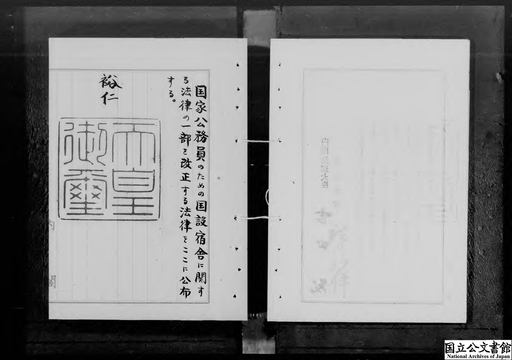 国家公務員のための国設宿舎に関す
る法律の一部を改正する法律をここに公布
する。
裕仁
天皇
御璽
国立公文書館
National Archives of Japan